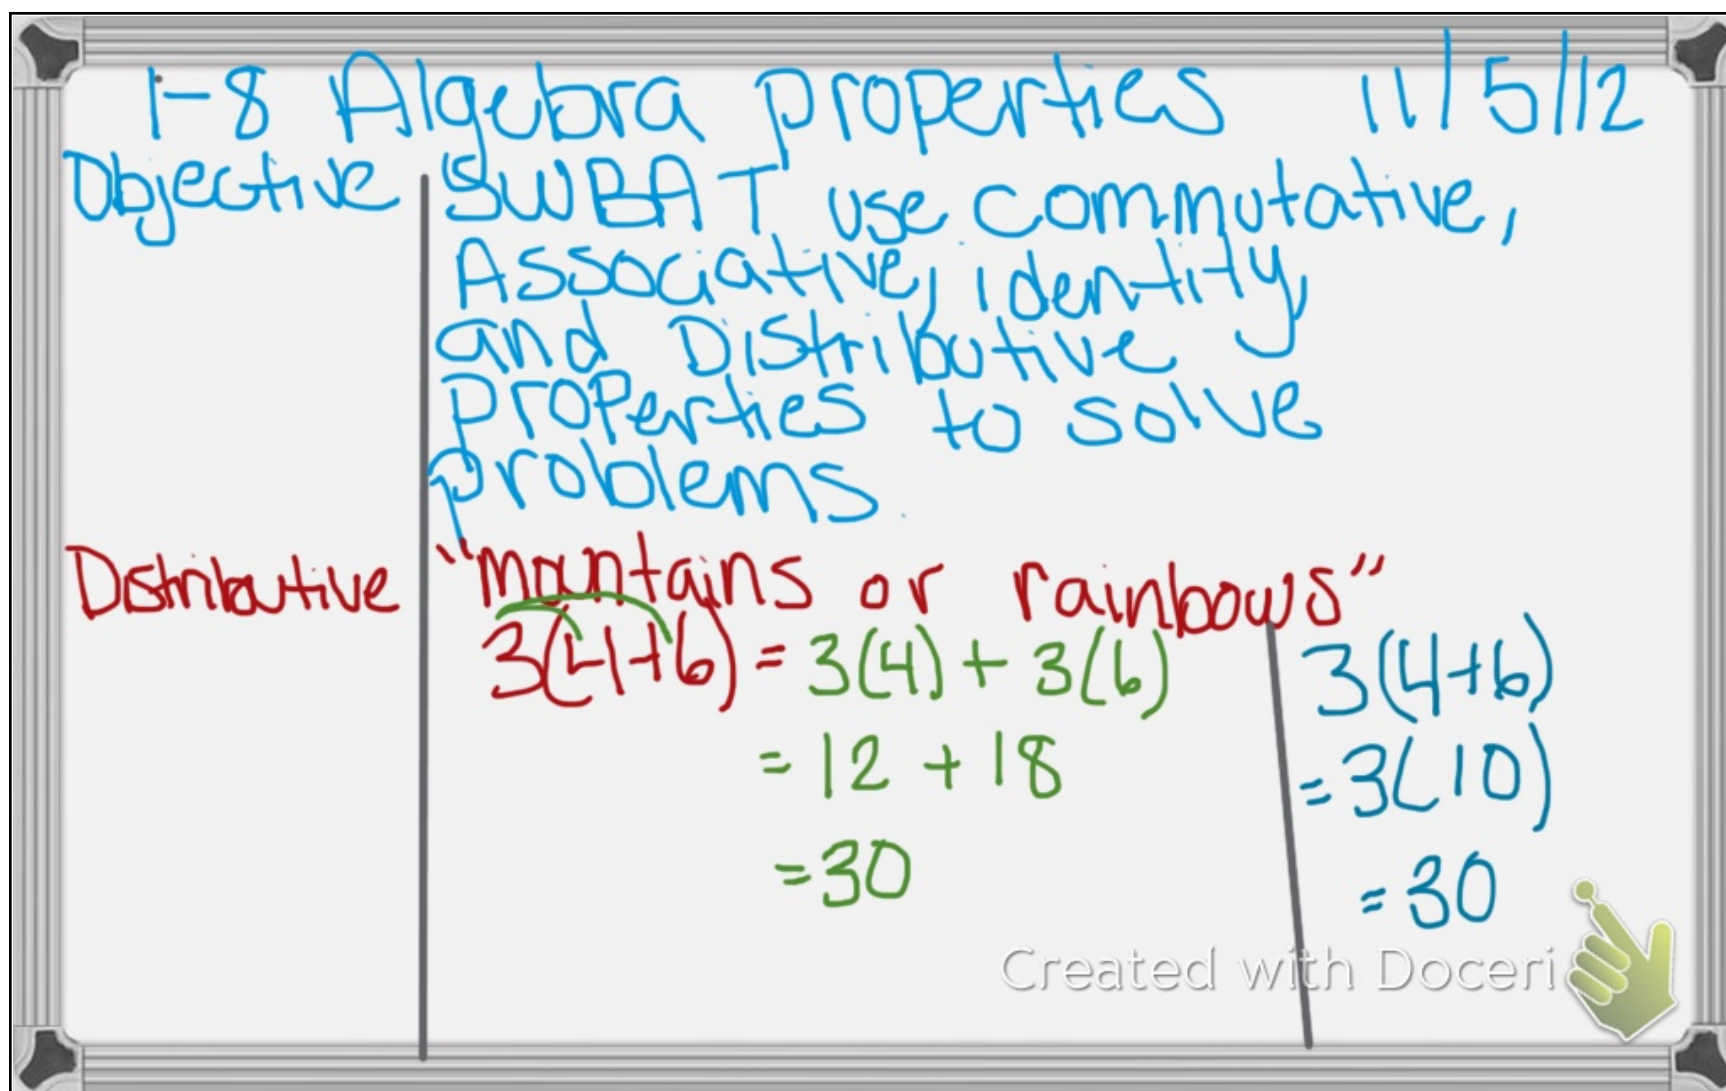 1-8 Algebra properties 11/5/12
Objective SWBAT use commutative,
Associative, identity,
and Distributive
properties to solve
problems.
Distributive "mountains or rainbows"
3(4+6) = 3(4) + 3(6)
= 12 + 18
= 30
3(4+6)
= 3(10)
= 30
Created with Doceri